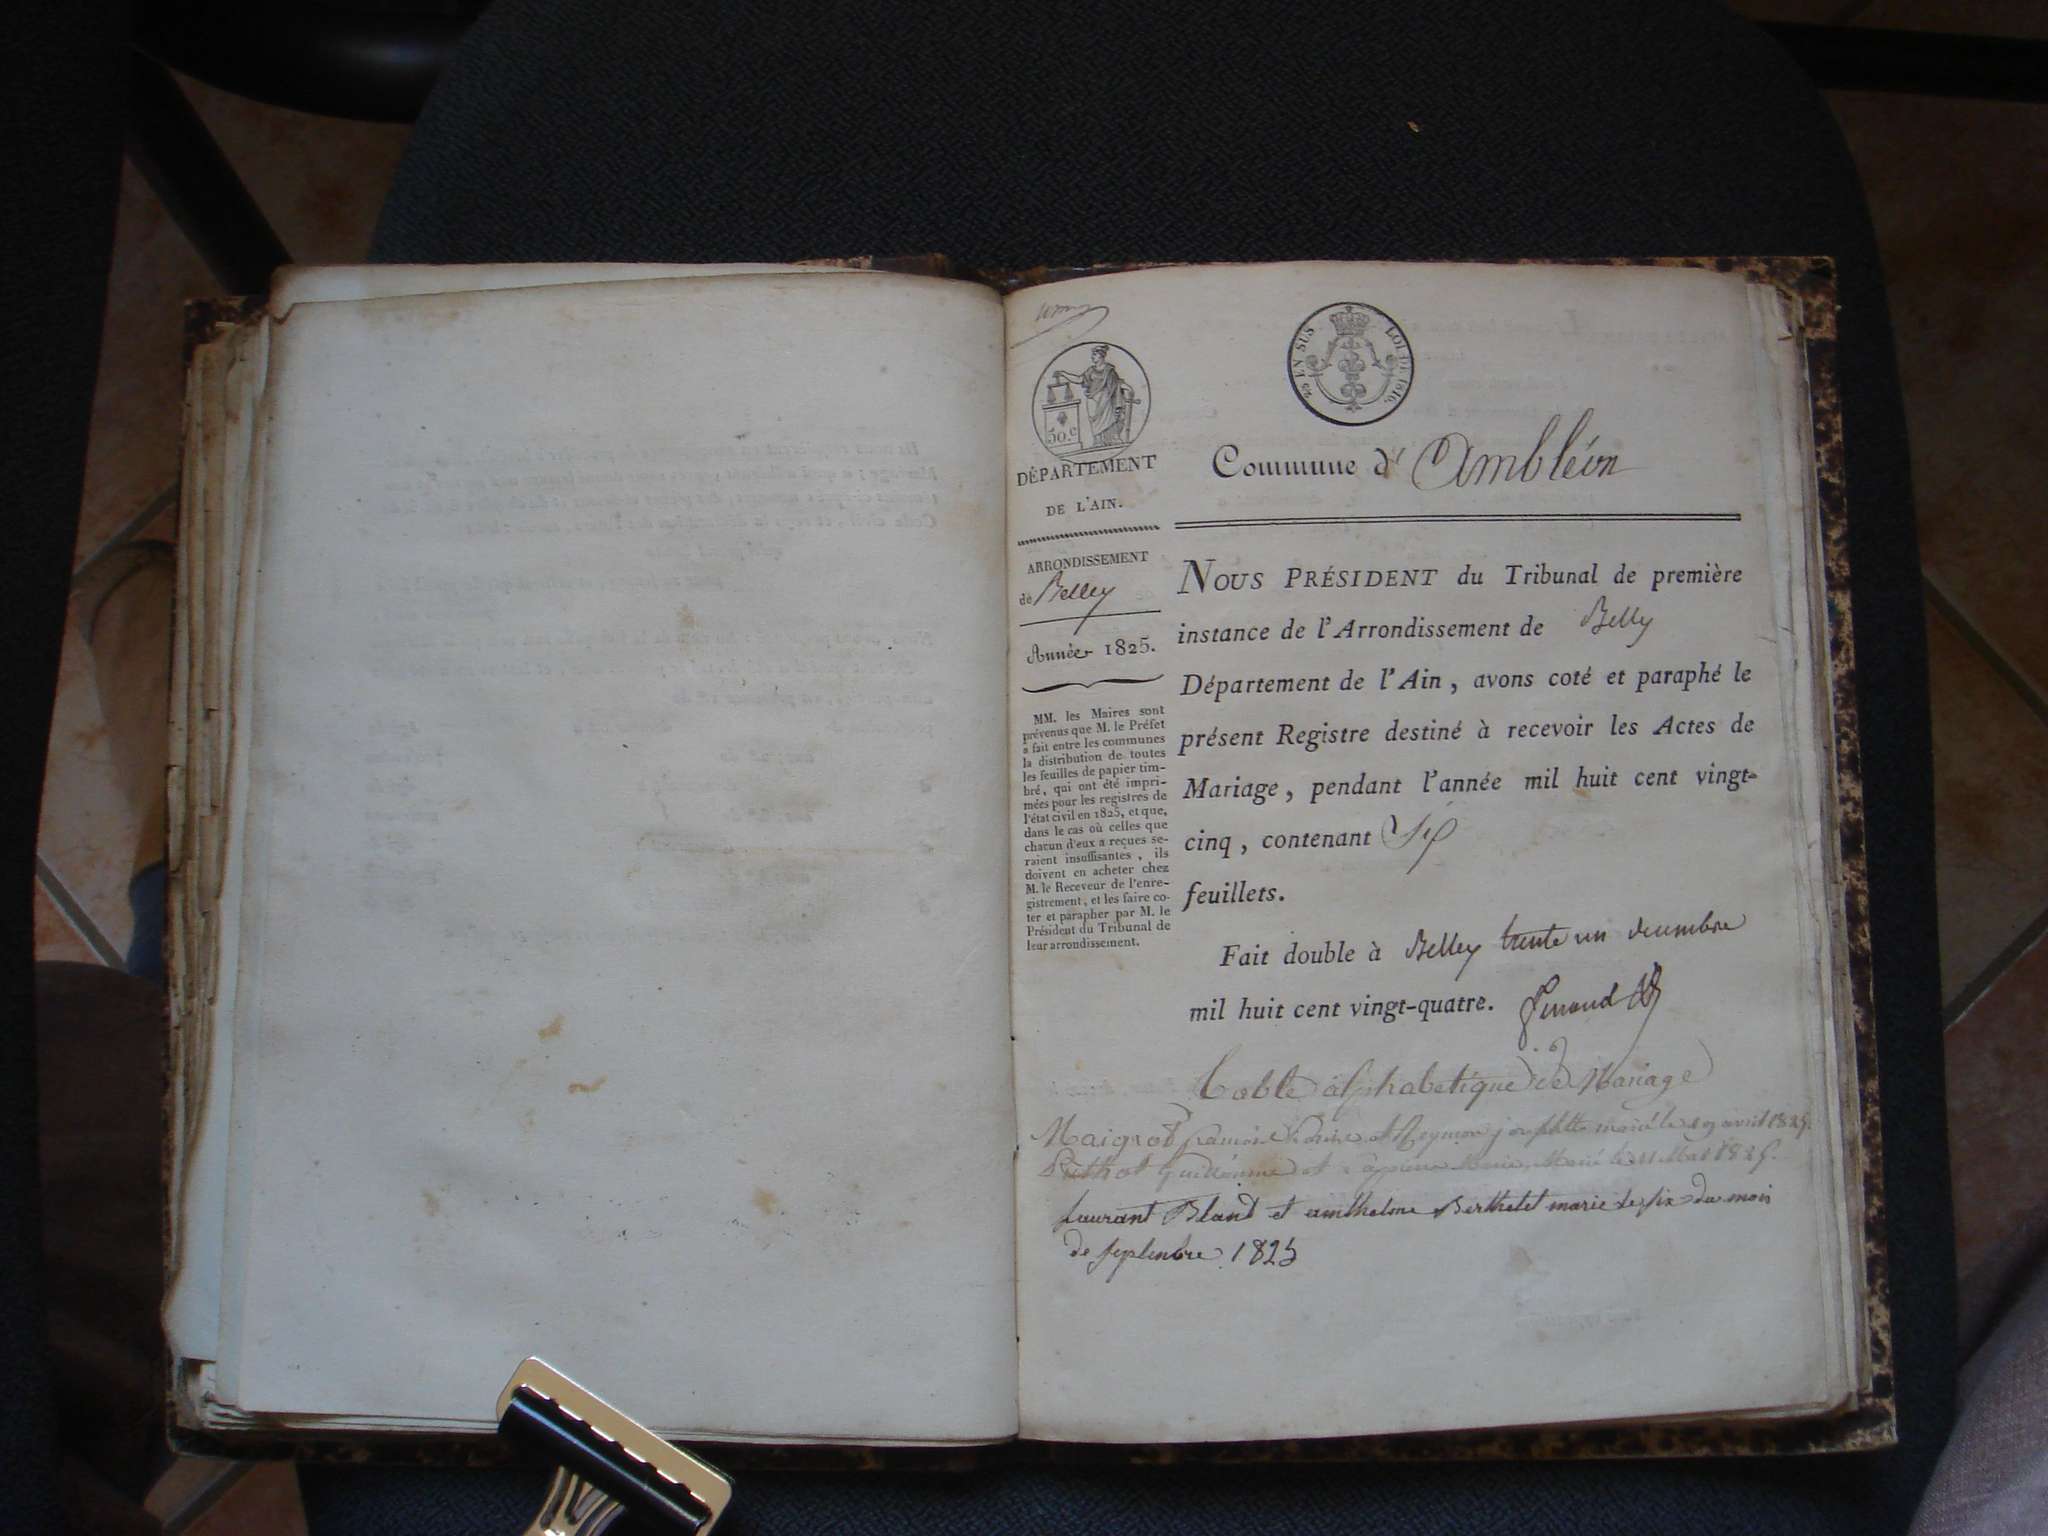 50.c
DÉPARTEMENT
DE L'AIN.
ARRONDISSEMENT
de Belley
Année 1825.
MM. les Maires sont
prévenus que M. le Préfet
a fait entre les communes
la distribution de toutes
les feuilles de papier tim-
bré, qui ont été impri-
mées pour les registres de
l'état civil en 1825, et que,
dans le cas où celles que
chacun d'eux a reçues se-
raient insuffisantes, ils
doivent en acheter chez
M. le Receveur de l'enre-
gistrement, et les faire co-
ter et parapher par M. le
Président du Tribunal de
leur arrondissement.
EN SUS LOI DE 1816.
Commune d' Ambléon
NOUS PRÉSIDENT du Tribunal de première
instance de l'Arrondissement de Belly
Département de l'Ain, avons coté et paraphé le
présent Registre destiné à recevoir les Actes de
Mariage, pendant l'année mil huit cent vingt-
cinq, contenant Six
feuillets.
Fait double à Belley trente un decembre
mil huit cent vingt-quatre.
Table alphabetique de Mariage
Maigrot et Reymon josephte marié le 19 avril 1825.
Guillaume et Marie Marié le 11 Mai 1825.
Laurant Bland et anthelme Berthelet marie le six du mois
de septembre 1825